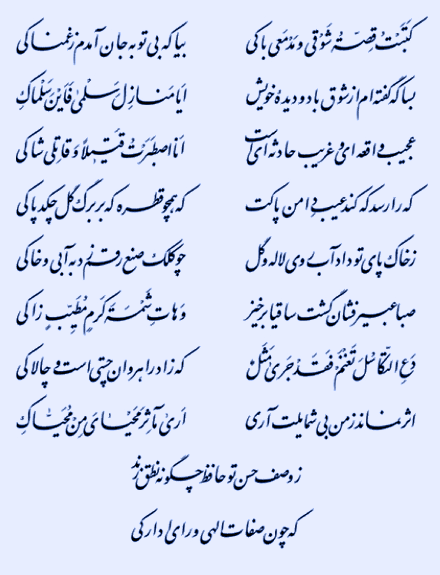 کَتَبْتُ قِصَّةَ شَوْقی و مَدْمَعی باکی بیا که بی تو به جان آمدم ز غمناکی
بسا که گفته‌ام از شوق با دو دیدهٔ خویش اَیا مَنازِلَ سَلْمیٰ فَاَیْنَ سَلْماکِ
عجیب واقعه‌ای و غریب حادثه‌ای است اَنا اصْطَبَرْتُ قَتیلاً وَ قاتِلی شاکی
که را رسد که کند عیب دامن پاکت که همچو قطره که بر برگ گل چکد پاکی
ز خاک پای تو داد آب روی لاله و گل چو کلک صنع رقم زد به آبی و خاکی
صبا عبیر فشان گشت ساقیا برخیز وَ هاتِ شَمْسَةَ کَرْمٍ مُطَیَّبٍ زاکی
دَعِ التَّکاسُلَ تَغْنَمْ فَقَدْ جَریٰ مَثَلٌ که زاد راهروان چستی است و چالاکی
اثر نماند ز من بی شمایلت آری اَریٰ مَآثِرَ مَحْیایَ مِنْ مُحَیّاکِ
ز وصف حسن تو حافظ چگونه نطق زند
که چون صفات الهی ورای ادراکی